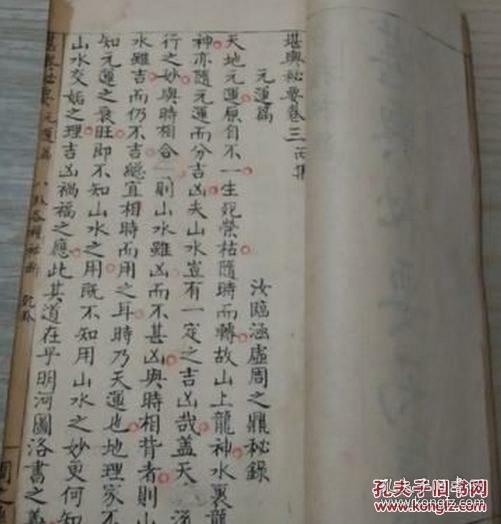 堪輿秘要卷三 丙集
元運篇
汝臨涵虛周之鼎秘錄
天地元運原自不一生死榮枯隨時而轉故山上龍神水裏龍
神亦隨元運而分吉凶夫山水豈有一定之吉凶哉蓋天
行之妙與時相合則山水雖凶而不甚凶與時相背者則山
水雖吉而仍不吉總宜相時而用之耳時乃天運也地理家不
知元運之衰旺即不知山水之用既不知用山水之妙更何知
山水交媾之理吉凶禍福之應此其道在乎明河圖洛書之義
堪輿秘要 元運篇
八卦
乾
孔夫子旧书网